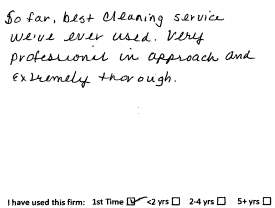 So far, best cleaning service
we've ever used. Very
professional in approach and
extremely thorough.
I have used this firm: 1st Time ☑ <2 yrs ☐ 2-4 yrs ☐ 5+ yrs ☐